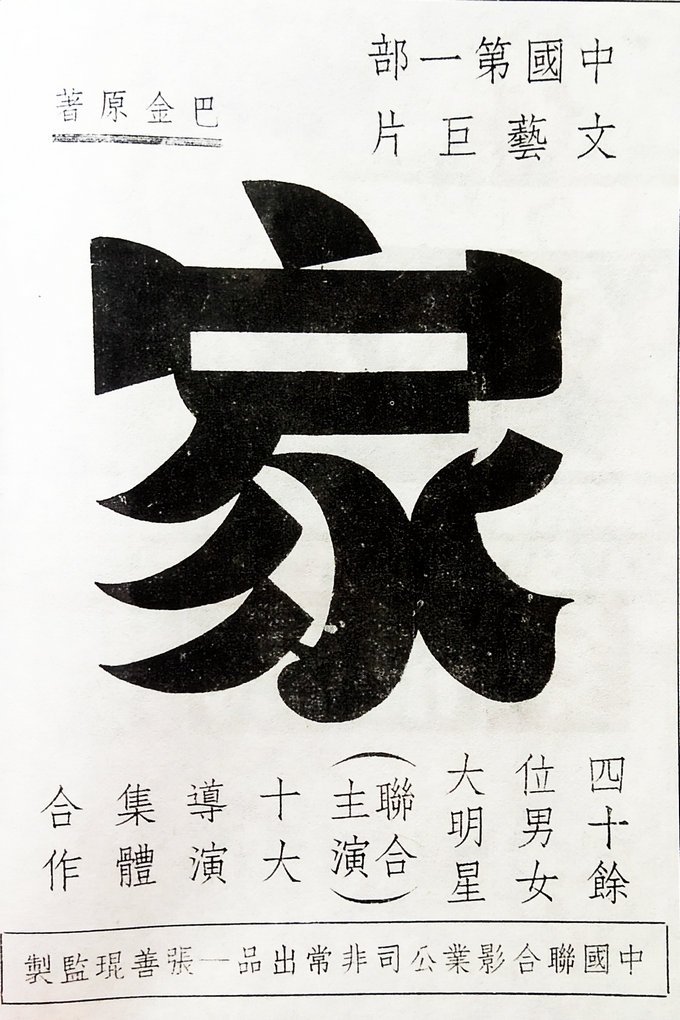 中國第一部
文藝巨片
巴金原著
家
四十餘
位男女
大明星
(聯合
主演)
十大
導演
集體
合作
中國聯合影業公司非常出品—張善琨監製